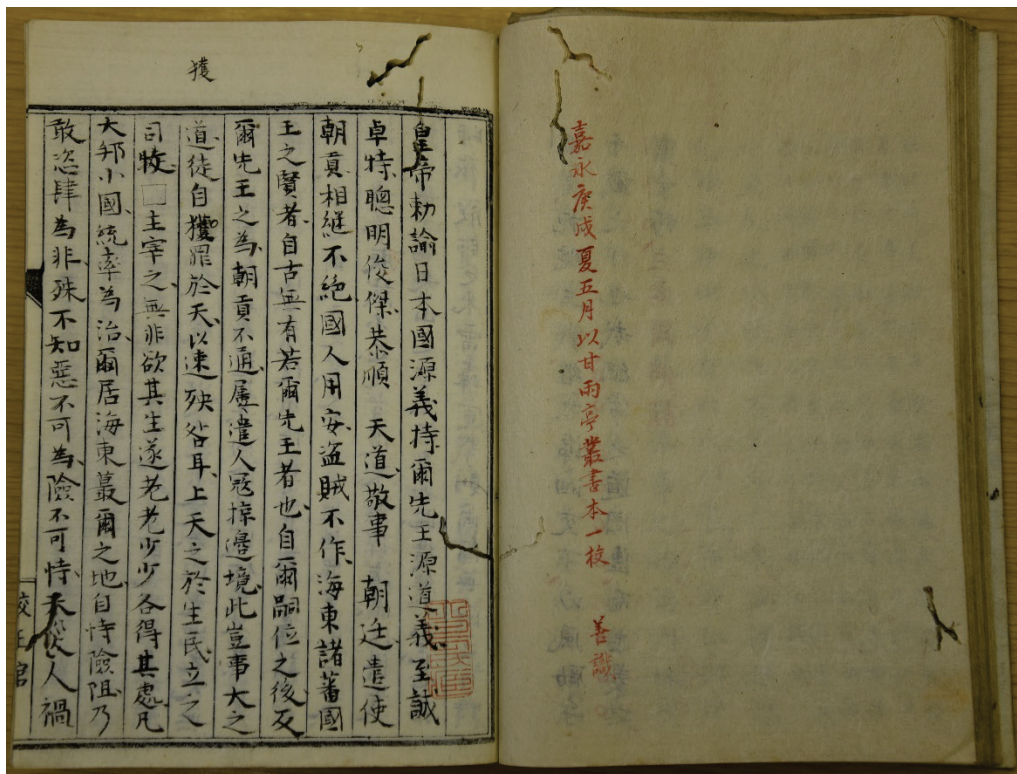 嘉永庚戌夏五月以甘雨亭叢書本一校　善識
獲
皇帝勅諭日本國源義持爾先王源道義至誠
卓特聰明俊傑恭順　天道敬事　朝廷遣使
朝貢相繼不絶國人用安盗賊不作海東諸蕃國
王之賢者自古無有若爾先王者也自爾嗣位之後反
爾先王之為朝貢不通屢遣人冦掠邊境此豈事大之
道徒自獲罪於天以速殃咎耳上天之於生民立之
司牧□主宰之無非欲其生遂老老少少各得其處凡
大邦小國統率為治爾居海東蕞爾之地自恃險阻乃
敢恣肆為非殊不知惡不可為險不可恃天災人禍